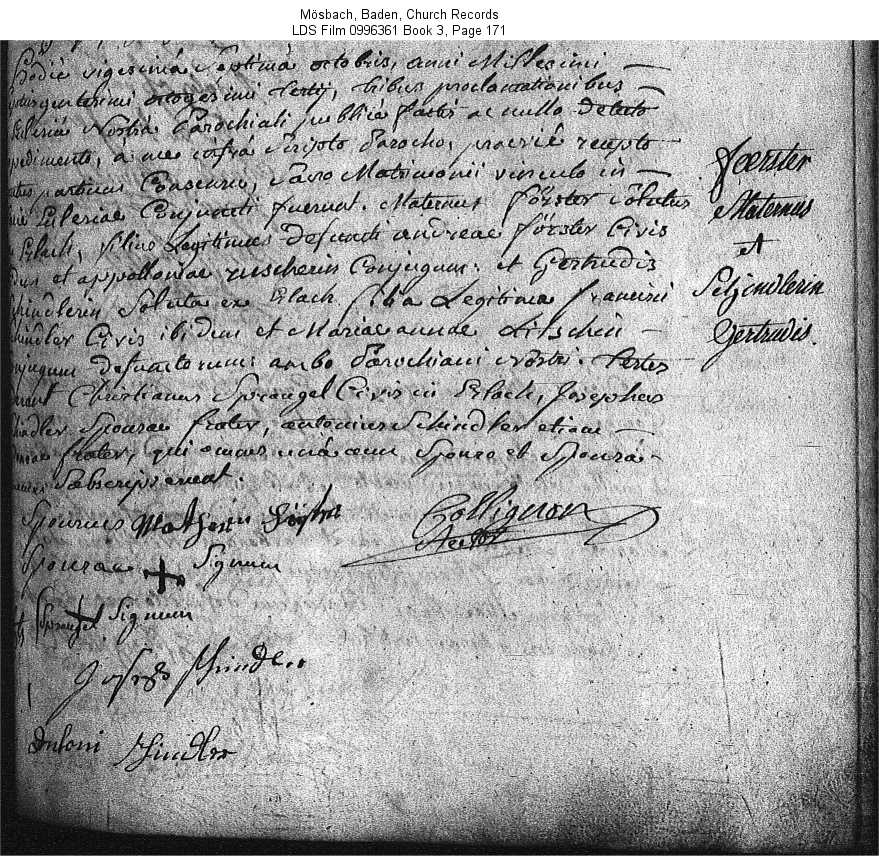 Mösbach, Baden, Church Records
LDS Film 0996361 Book 3, Page 171
Hodie vigesima Septima octobris, anni Millesimi
octogesimi tertij, tribus proclamationibus
Ecclesia Nostra Parochiali publice factis ac nullo detecto
impedimento, a me infra scripto Parocho, recepto
partium Consensu, Sacro Matrimonii vinculo in
Conjuncti fuerunt. Maternus förster Solutus
Erlach, filius Legitimus defuncti andreae förster Civis
et appolloniae ruscherin Conjugum: et Gertrudis
Schindlerin Soluta ex Erlach filia Legitima francisci
Schindler Civis ibidem et Mariae annae
Conjugum defunctorum: ambo Parochiani Nostri. testes
Christianus Sprangel Civis in Erlach, Josephus
Schindler Sponsae frater, antonius Schindler etiam
Sponsae frater, qui omnes una cum Sponso et Sponsa
Subscripserunt.
foerster
Maternus
et
Schindlerin
Gertrudis.
Sponsus
Collignon
Rector
Sponsae + Signum
Sprangel Signum
Schindler
Antoni Schindler